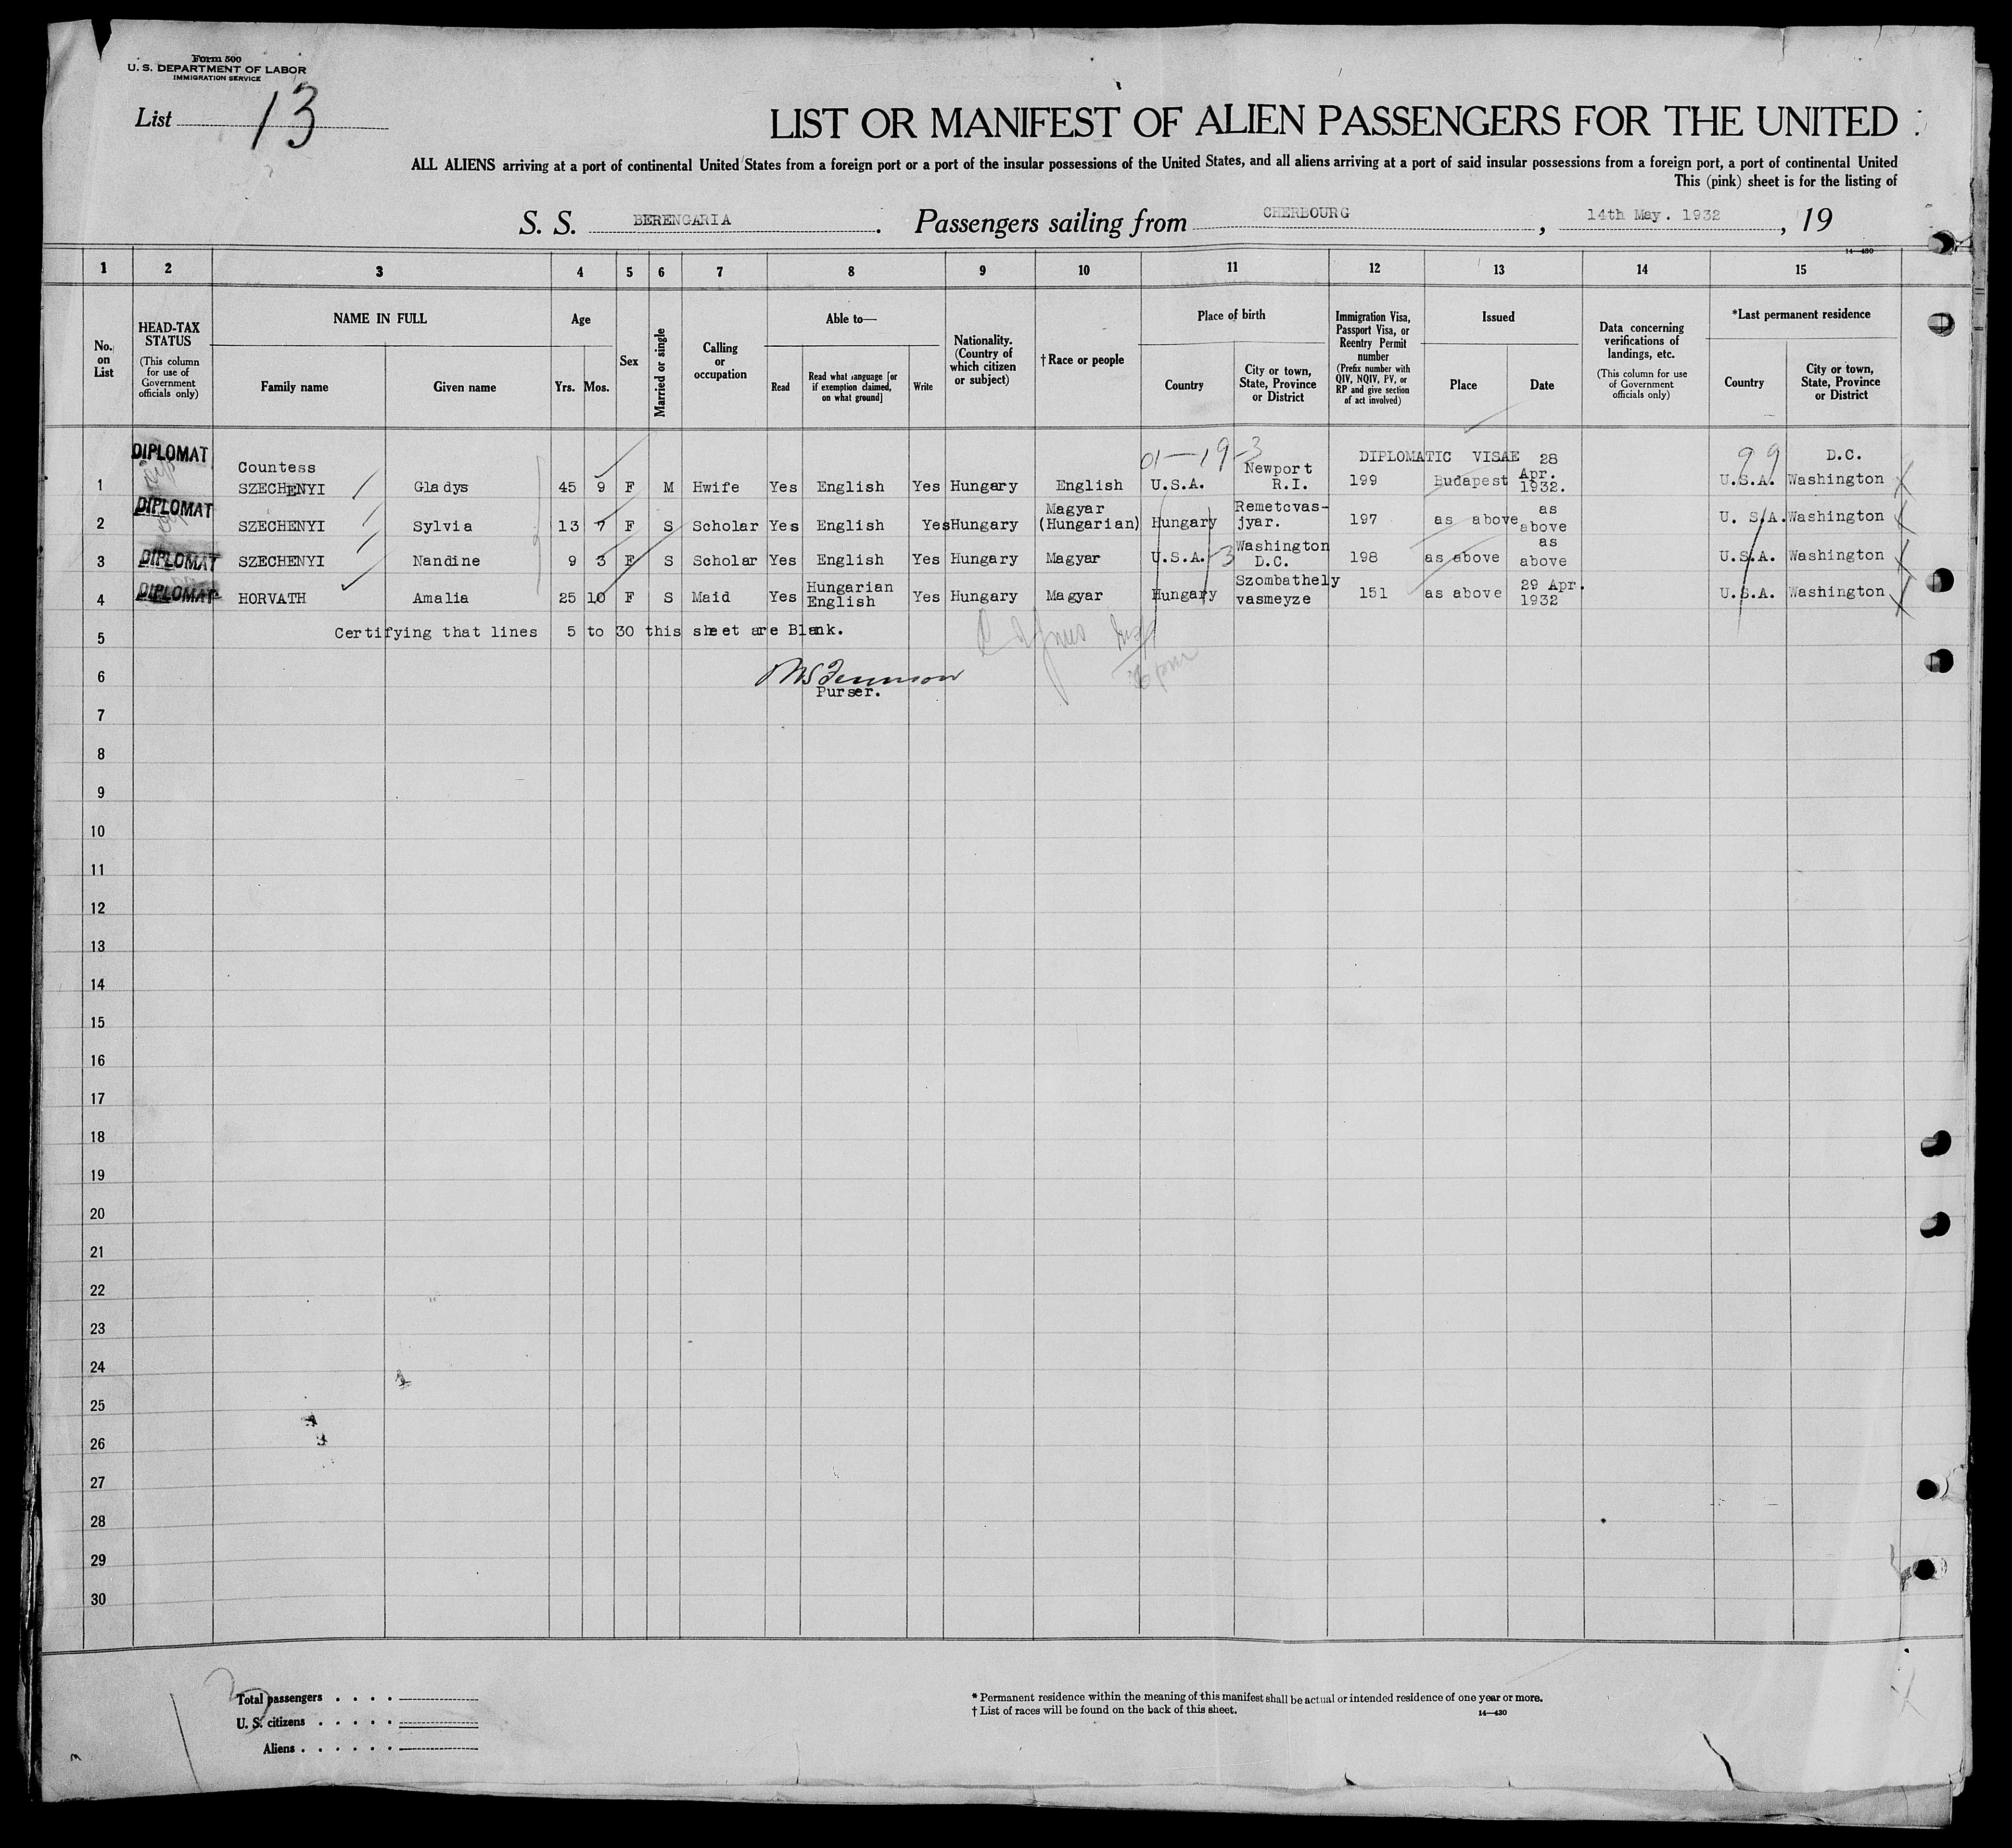 Form 500
U. S. DEPARTMENT OF LABOR
IMMIGRATION SERVICE
List 13
LIST OR MANIFEST OF ALIEN PASSENGERS FOR THE UNITED
ALL ALIENS arriving at a port of continental United States from a foreign port or a port of the insular possessions of the United States, and all aliens arriving at a port of said insular possessions from a foreign port, a port of continental United
This (pink) sheet is for the listing of
S. S. BERENGARIA . Passengers sailing from CHERBOURG , 14th May. 1932 , 19
14—430
1 2 3 4 5 6 7 8 9 10 11 12 13 14 15
No. on List
HEAD-TAX STATUS
(This column for use of Government officials only)
NAME IN FULL
Family name
Given name
Age
Yrs. Mos.
Sex
Married or single
Calling or occupation
Able to—
Read
Read what language [or if exemption claimed, on what ground]
Write
Nationality. (Country of which citizen or subject)
†Race or people
Place of birth
Country
City or town, State, Province or District
Immigration Visa, Passport Visa, or Reentry Permit number
(Prefix number with QIV, NQIV, PV, or RP and give section of act involved)
Issued
Place
Date
Data concerning verifications of landings, etc.
(This column for use of Government officials only)
*Last permanent residence
Country
City or town, State, Province or District
01—19-3
99
1 DIPLOMAT Countess SZECHENYI Gladys 45 9 F M Hwife Yes English Yes Hungary English U.S.A. Newport R.I. DIPLOMATIC VISAE 199 Budapest 28 Apr. 1932. U.S.A. D.C. Washington
2 DIPLOMAT SZECHENYI Sylvia 13 7 F S Scholar Yes English Yes Hungary Magyar (Hungarian) Hungary Remetcvas-jyar. 197 as above as above U. S.A. Washington
3 DIPLOMAT SZECHENYI Nandine 9 3 F S Scholar Yes English Yes Hungary Magyar U.S.A. -3 Washington D.C. 198 as above as above U.S.A. Washington
4 DIPLOMAT HORVATH Amalia 25 10 F S Maid Yes Hungarian English Yes Hungary Magyar Hungary Szombathely vasmeyze 151 as above 29 Apr. 1932 U.S.A. Washington
5 Certifying that lines 5 to 30 this sheet are Blank.
6
Purser.
7
8
9
10
11
12
13
14
15
16
17
18
19
20
21
22
23
24
25
26
27
28
29
30
Total passengers . . . .
U. S. citizens . . . . .
Aliens . . . . . .
* Permanent residence within the meaning of this manifest shall be actual or intended residence of one year or more.
† List of races will be found on the back of this sheet.
14—430